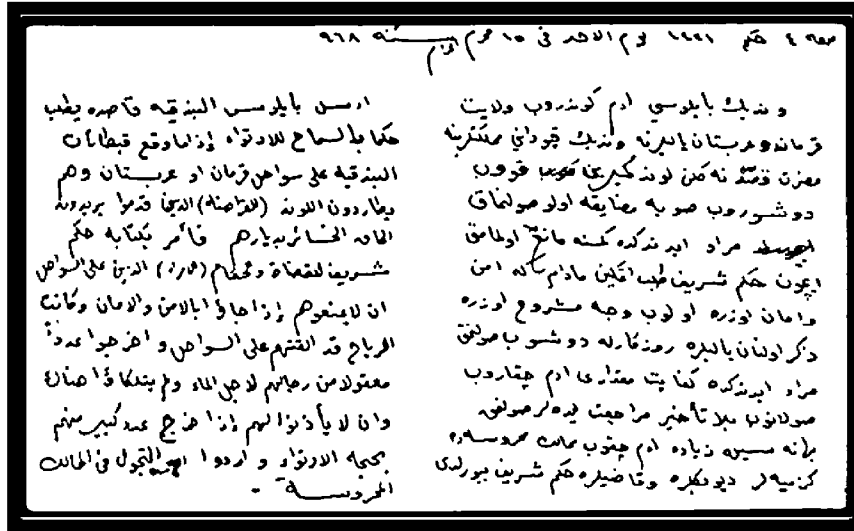 صفحه ٤ حكم ١٤٢١ يوم الاحد في ١٥ محرم الحرام سنة ٩٦٨
ونديك بايلوسي ادم كوندروب ولايت
قرمان وعربستان ياليلرنه ونديك قپوداني
مضرت قصدنه كلن لوند قووب
دوشوروب صويه مضايقه اولوب صولنمق
مراد ايدندكده كمسنه مانع اولمامق
ايچون حكم شريف طلب مادام كه امن
وامان اوزره اولوب وجه مشروع اوزره
ذكر اولنان ياليلره روزكارله دوشوب صولنمق
مراد ايدندكده كفايت مقداري ادم چقاروب
صولانوب بلا تأخير مراجعت ايده لر صولنمق
بهانه سيله زياده ادم چقوب ممالك محروسه ده
كزميه لر ديو بكلره وقاضيلره حكم شريف بيورلدي
ارسل بايلوس البندقية قاصده يطلب
حكما بالسماح للارتواء إذا ما وقع قبطانات
البندقية على سواحل قرمان او عربستان وهم
يطاردون اللوند (القراصنة) الذين قدموا يريدون
الحاق الخسائر بديارهم فأمر بكتابة حكم
شريف للقضاة الذين على السواحل
ان لا يمنعوهم إذا جاؤا بالامن والامان وكانت
الرياح قد القتهم على السواحل و اخرجوا عددا
معقولا من رجالهم لاجل الماء ولم يتلكاؤا هناك
وان لا يأذنوا لهم إذا خرج عدد كبير منهم
بحجة الارتواء و ارادوا التجول في الممالك
المحروسة .